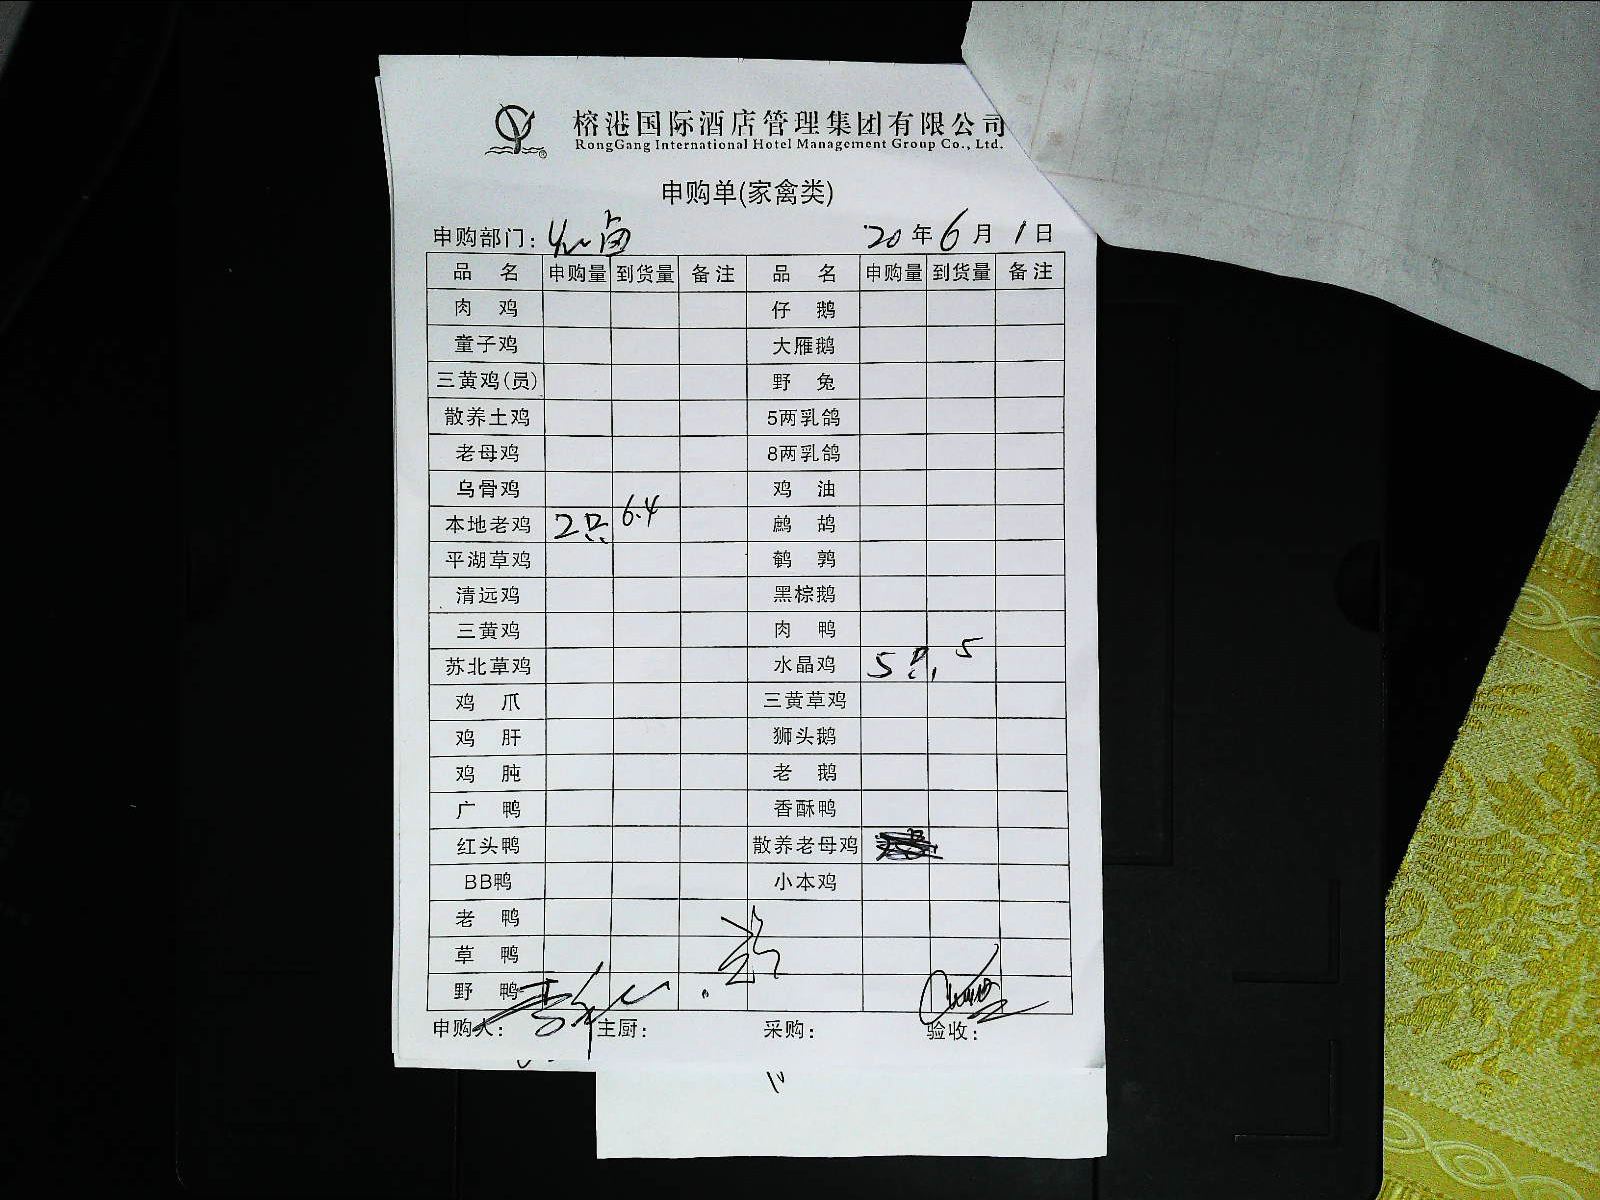 榕港国际酒店管理集团有限公司
RongGang International Hotel Management Group Co., Ltd.
申购单(家禽类)
申购部门: 20年6月1日
品名 申购量 到货量 备注 品名 申购量 到货量 备注
肉鸡 仔鹅
童子鸡 大雁鹅
三黄鸡(员) 野兔
散养土鸡 5两乳鸽
老母鸡 8两乳鸽
乌骨鸡 鸡油
本地老鸡 2只 6.4 鹧鸪
平湖草鸡 鹌鹑
清远鸡 黑棕鹅
三黄鸡 肉鸭
苏北草鸡 水晶鸡 5只 5
鸡爪 三黄草鸡
鸡肝 狮头鹅
鸡肫 老鹅
广鸭 香酥鸭
红头鸭 散养老母鸡
BB鸭 小本鸡
老鸭
草鸭
野鸭
申购人: 主厨: 采购: 验收: